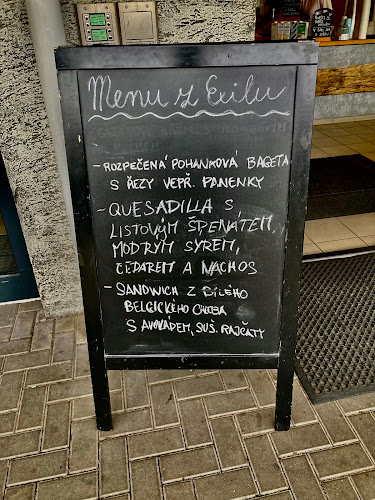 Menu z Exilu
- ROZPEČENÁ POHANKOVÁ BAGETA
S ŘEZY VEPŘ. PANENKY
- QUESADILLA S
LISTOVÝM ŠPENÁTEM,
MODRÝM SÝREM,
ČEDAREM A NACHOS
- SANDWICH Z BÍLÉHO
BELGICKÉHO CHLEBA
S AVOKÁDEM, SUŠ. RAJČATY